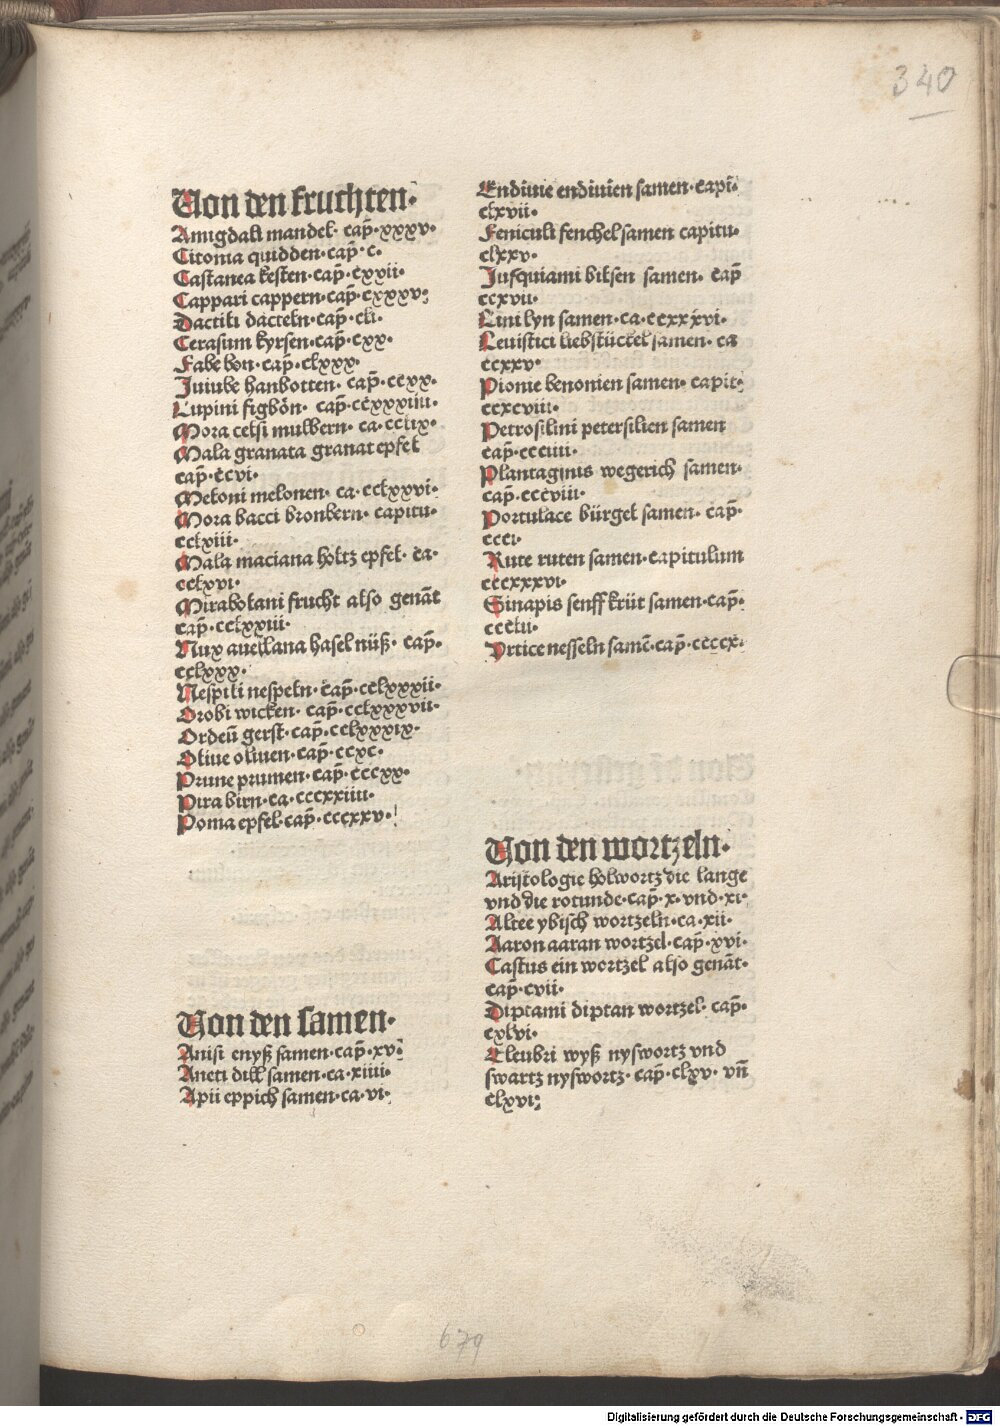 340
Von den fruchten·
Amigdali mandel· cap̄·xxxv·
Citonia quidden·cap̄·c·
Castanea kesten·cap̄·cxxii·
Cappari cappern·cap̄·cxxxv·
Dactili dacteln·cap̄·cli·
Cerasum kyrsen·cap̄·cxx·
Fabe bon·cap̄·clxxx·
Juiube hanbotten· cap̄·ccxx·
Lupini figbōn· cap̄·ccxxxiiii·
Mora celsi mulbern· ca·cclix·
Mala granata granat epfel
cap̄·ccvi·
Meloni melonen· ca·cclxxvi·
Mora bacci bronbern· capitu·
cclxiii·
Mala maciana holtz epfel· ca·
cclxvi·
Mirabolani frucht also genāt
cap̄·cclxxiii·
Nux auellana hasel nüß· cap̄·
cclxxx·
Nespili nespeln· cap̄·cclxxxii·
Orobi wicken· cap̄·cclxxxvii·
Ordeū gerst·cap̄·cclxxxix·
Oliue oliuen·cap̄·ccxc·
Prune prumen·cap̄·cccxx·
Pira birn·ca·cccxxiiii·
Poma epfel·cap̄·cccxxv·
Von den samen·
Anisi enyß samen·cap̄·xv·
Aneti dill samen·ca·xiiii·
Apii eppich samen·ca·vi·
Endiuie endiuien samen·capi·
clxvii·
Feniculi fenchel samen capitu·
clxxv·
Jusquiami bilsen samen· cap̄
ccxvii·
Lini lyn samen·ca·ccxxxvi·
Leuistici liebstückel samen· ca
ccxxv·
Pionie benonien samen· capit·
ccxcviii·
Petrosilini petersilien samen
cap̄·ccciiii·
Plantaginis wegerich samen·
cap̄·cccviii·
Portulace bürgel samen· cap̄·
ccci·
Rute ruten samen·capitulum
cccxxxvi·
Sinapis senff krüt samen·cap̄·
ccclii·
Vrtice nesseln samē·cap̄·ccccx·
Von den wortzeln·
Aristologie holwortz die lange
vnd die rotunde·cap̄·x·vnd·xi·
Altee ybisch wortzeln·ca·xii·
Aaron aaran wortzel·cap̄·xvi·
Castus ein wortzel also genāt·
cap̄·cvii·
Diptami diptan wortzel· cap̄·
cxlvi·
Eleubri wyß nyswortz vnd
swartz nyswortz· cap̄·clxv· vn̄
clxvi·
679
Digitalisierung gefördert durch die Deutsche Forschungsgemeinschaft - DFG